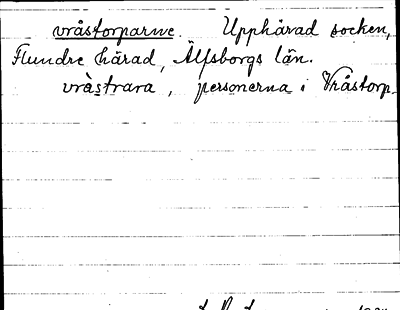 vråstorparne. Upphärad socken,
Flundre härad, Älfsborgs län.
vràstrara, personerna i Vråstorp.